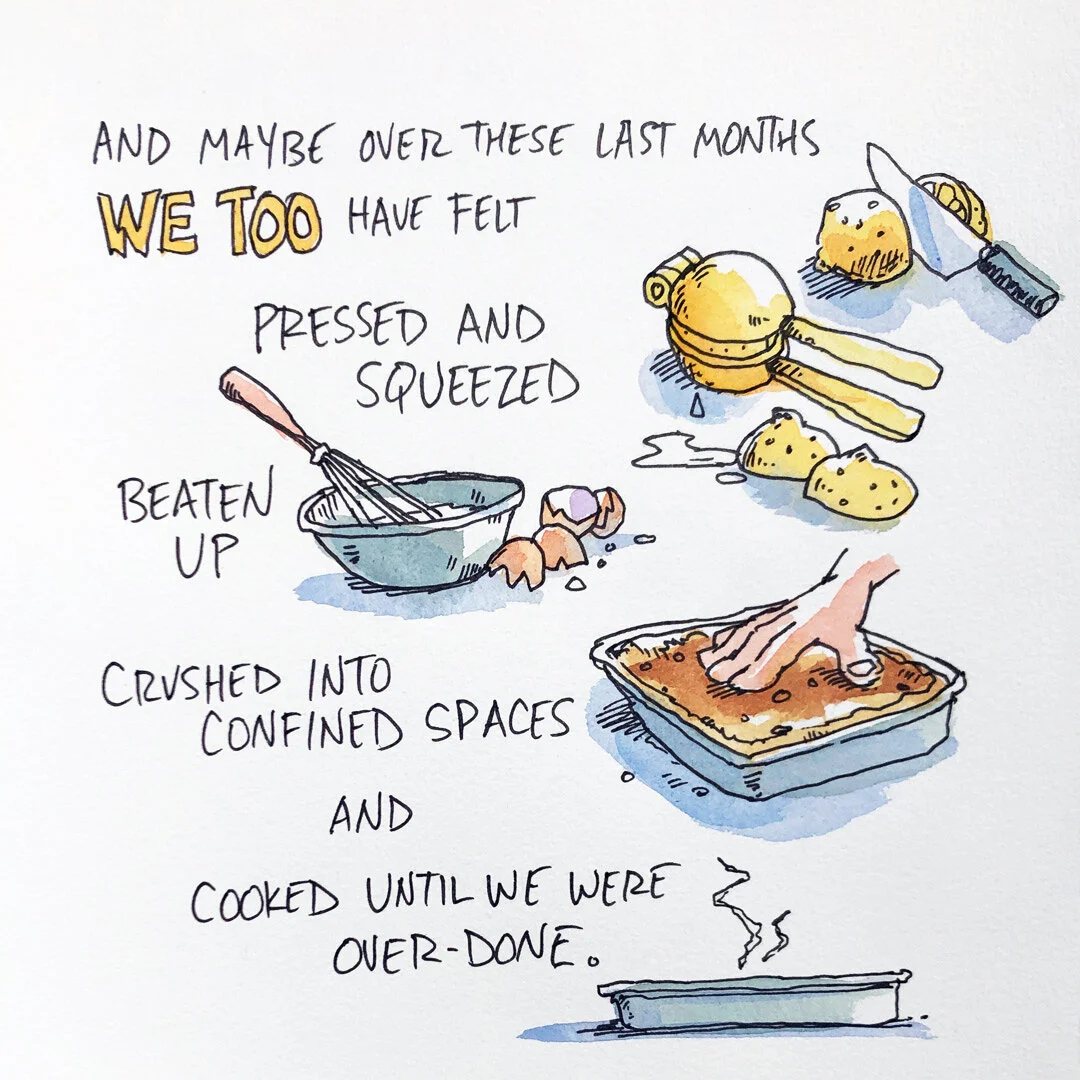 AND MAYBE OVER THESE LAST MONTHS
WE TOO HAVE FELT
PRESSED AND
SQUEEZED
BEATEN
UP
CRUSHED INTO
CONFINED SPACES
AND
COOKED UNTIL WE WERE
OVER-DONE.